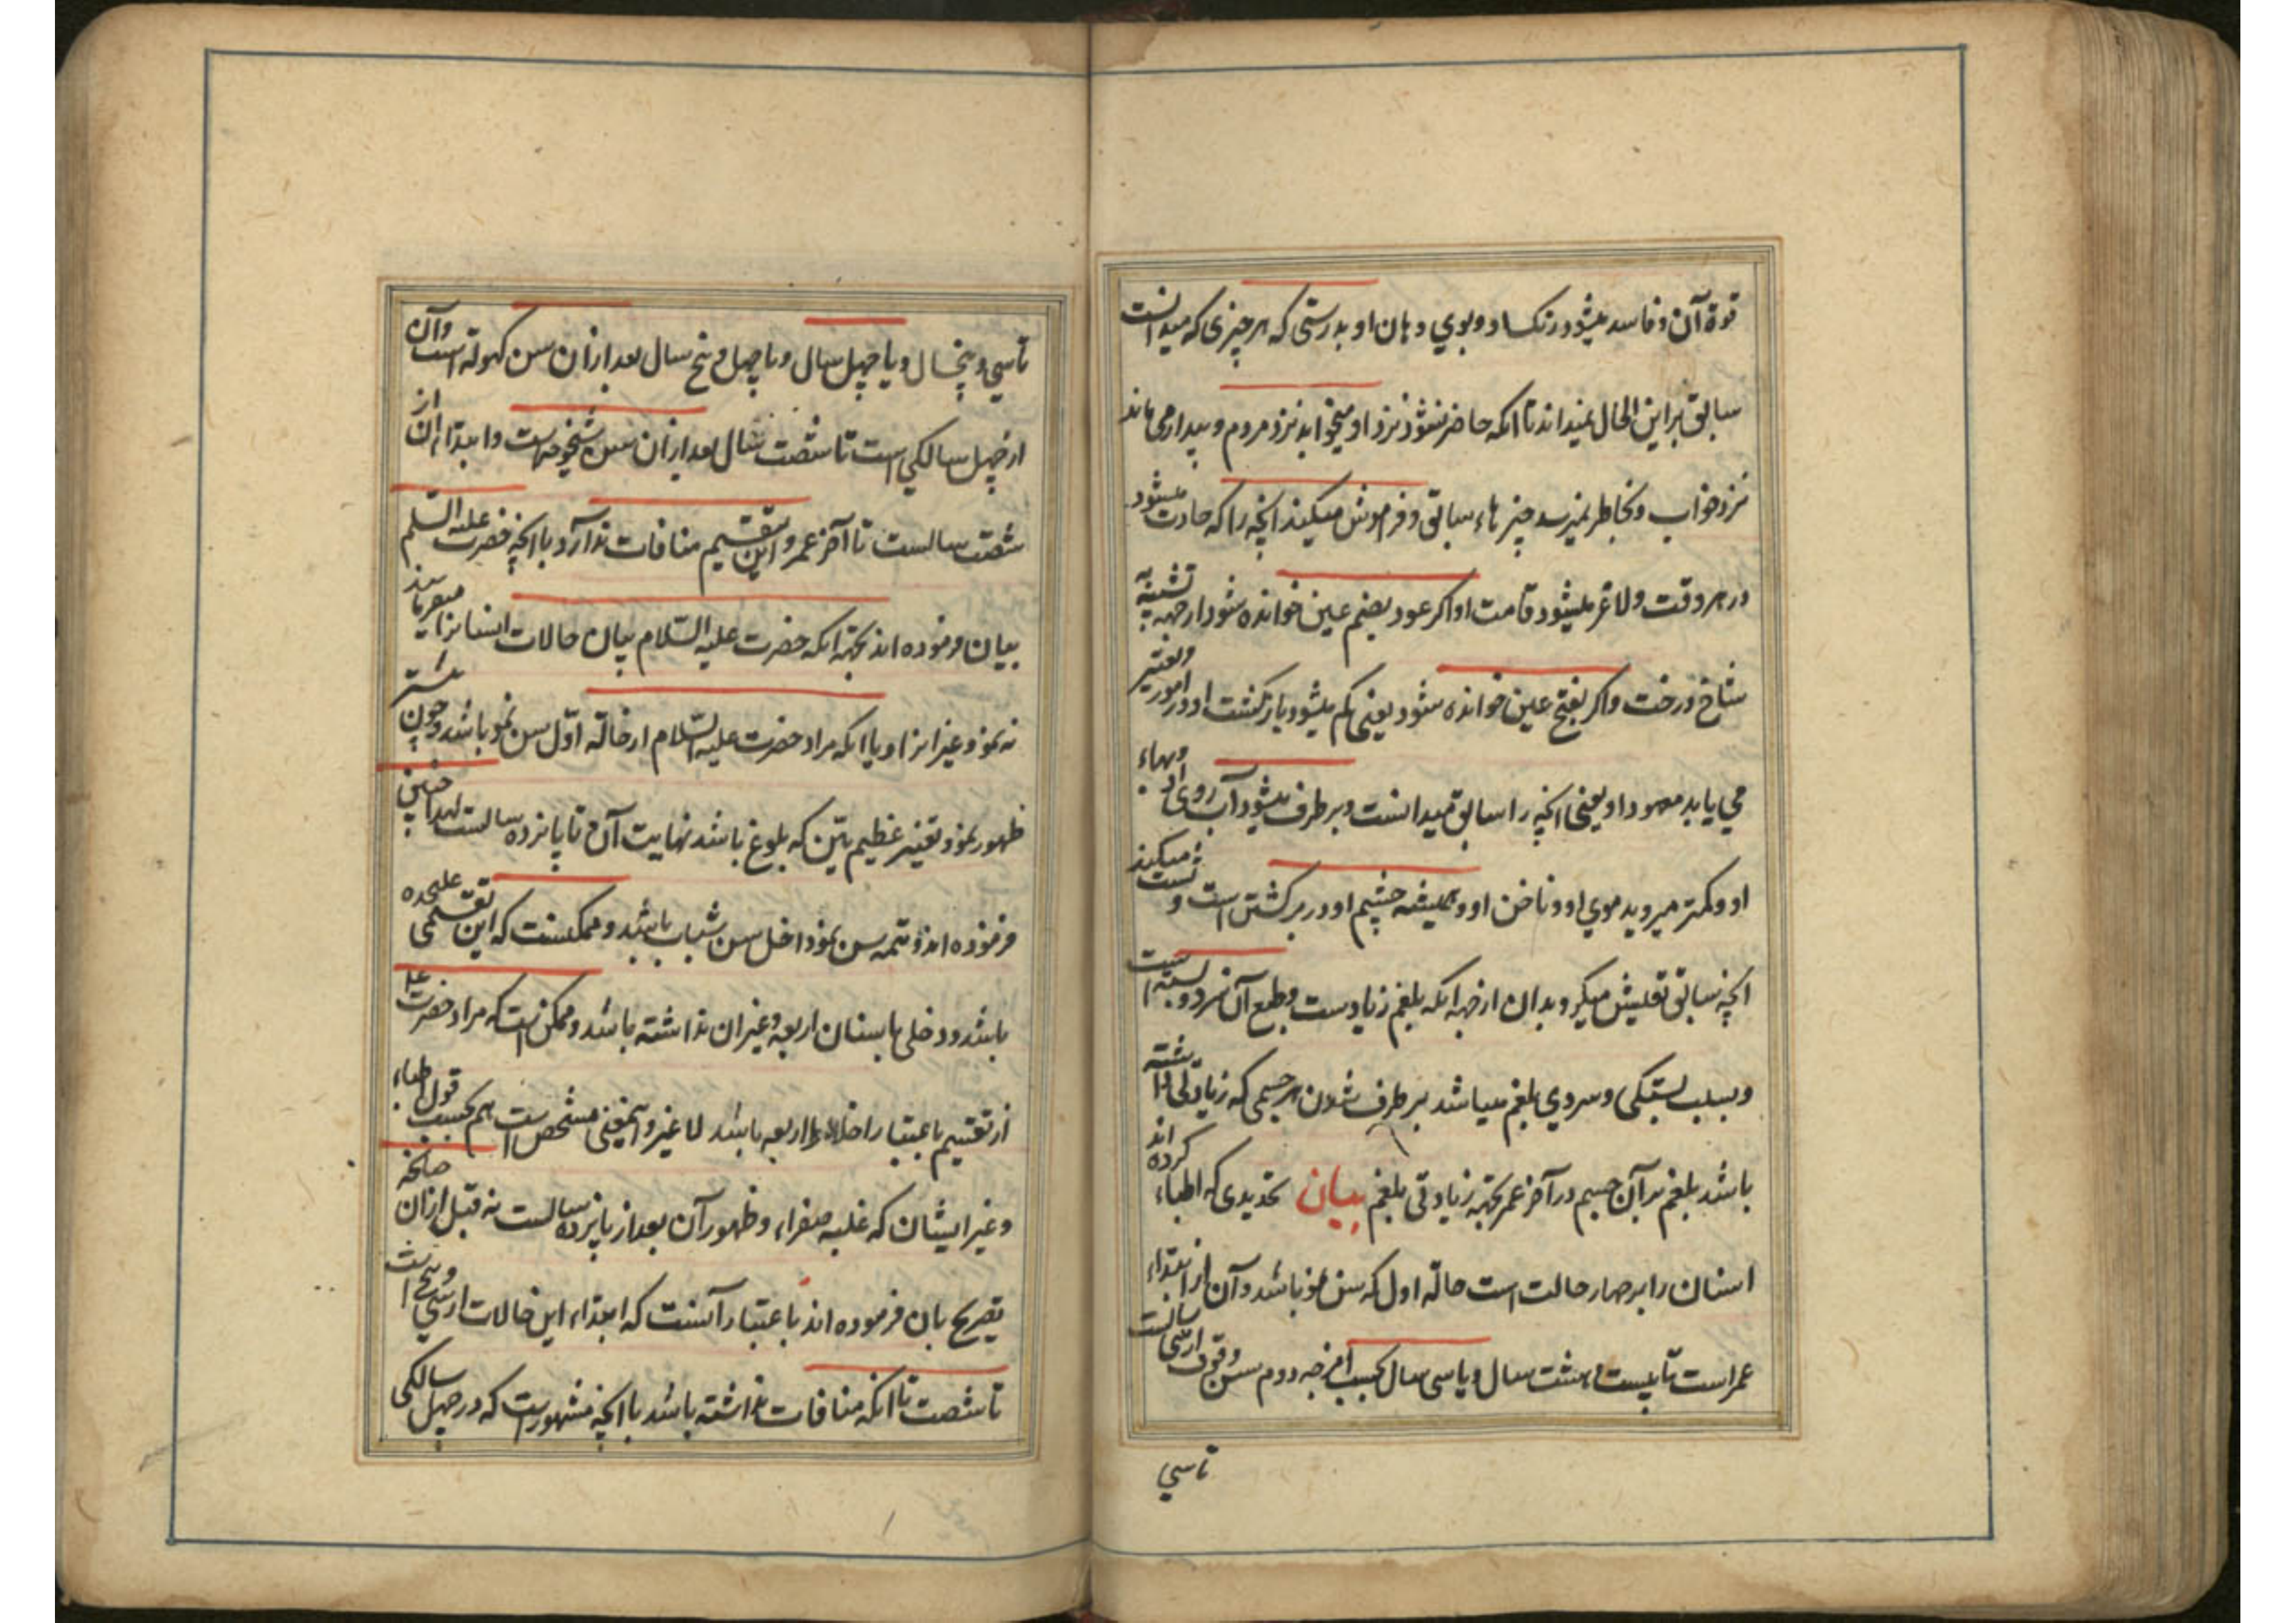 قوة آن و فاسد میشود رنک او و بوی دهان او بدرستی که هر چیزی که میدانست
سابق بر این الحال نمیداند تا انکه حاضر نشود نزد او میخوابد نزد مردم و بیدار می ماند
نزد خواب و بخاطر نمیرسد چیزهاء سابق و فراموش میکند انچه را که حادث میشود
در هر وقت و لاغر میشود قامت او اکر عود بضم عین خوانده شود از جهه تشبیه به
شاخ درخت و اکر بفتح عین خوانده شود یعنی کم میشود بازکشت او در امور و تغییر
می یابد معهود او یعنی انچه را سابق میدانست و برطرف میشود آب روی او و بهاء
او و کمتر میروید موی او و ناخن او و همیشه چشم او در برکشتن است و نشست میکند
انچه سابق میکرد بدان از جهه انکه بلغم زیادست و طبع آن سرد و بسته است
و بسبب بستکی و سردی بلغم میباشد برطرف شدن هر جسمی که زیادتی داشته
باشد بلغم بر آن جسم در آخر عمر بجهة زیادتی بلغم بیان تحدیدی که اطباء کرده اند
اسنان را بر چهار حالت است حالة اول که سن نمو باشد و آن از ابتداء
عمر است تا بیست و هشت سال و یا سی سال بحسب امزجه دوم سن وقوف از سی سالست
تا سی
تا سی و پنجسال و یا چهل سال و یا چهل و پنج سال بعد از ان سن کهولة است و آن
از چهل سالکی است تا شصت سال بعد از ان سن شیخوخیت و ابتداء ان از
شصت سالست تا آخر عمر و این تقسیم منافات ندارد با انچه حضرت علیه السلم
بیان فرموده اند بجهة انکه حضرت علیه السلام بیان حالات انسانرا میفرمایند
نه نمو و غیر انرا و یا انکه مراد حضرت علیه السلام از حالة اول سن نمو باشد و چون
ظهور نمو و تغییر عظیم بین که بلوغ باشد نهایت آن تا پانزده سالست لهذا چنین
فرموده اند و تتمه سن نمو داخل سن شباب باشد و ممکنست که این تقسیمی علیحده
باشد و دخلی باسنان اربعه و غیر ان نداشته باشد و ممکن است که مراد حضرت
از تقسیم باعتبار اخلاط اربعه باشد لا غیر و اینمعنی مشخص است هم بحسب قول اطباء
و غیر ایشان که غلبه صفراء و ظهور آن بعد از پانزده سالست نه قبل از ان چنانچه
تصریح بان فرموده اند باعتبار آنست که ابتداء این حالات از سی و پنج است
تا شصت تا انکه منافات نداشته باشد با انچه مشهور است که در چهل سالکی